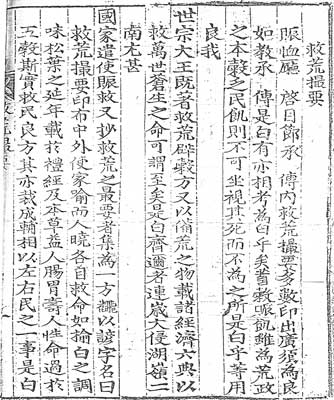 救荒撮要
賑恤廳 啓目節承 傳內救荒撮要多數印出廣須爲良
如教承 傳是白有亦相考爲白乎矣蓄穀賑飢雖爲荒政
之本穀乏民飢則不可坐視其死而不爲之所是白乎等用
良我
世宗大王既著救荒辟穀方又以備荒之物載諸經濟六典以
救萬世蒼生之命可謂至矣是白齊邇者連歲大侵湖嶺二
南尤甚
國家遣使賑救又抄救荒之最要者集爲一方飜以諺字名曰
救荒撮要印布中外使家喩而人曉各自救命如揄白之調
味松葉之延年載於禮經及本草益人腸胃壽人性命過於
五穀斯實救民良方其亦裁成輔相以左右民之一事是白